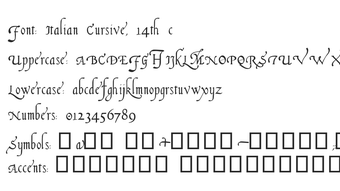 Font: Italian Cursive, 14th c
Uppercase: ABCDEFGHIJKLMNOPQRSTUVWX
Lowercase: abcdefghijklmnopqrstuvwxyz
Numbers: 0123456789
Symbols:
Accents: